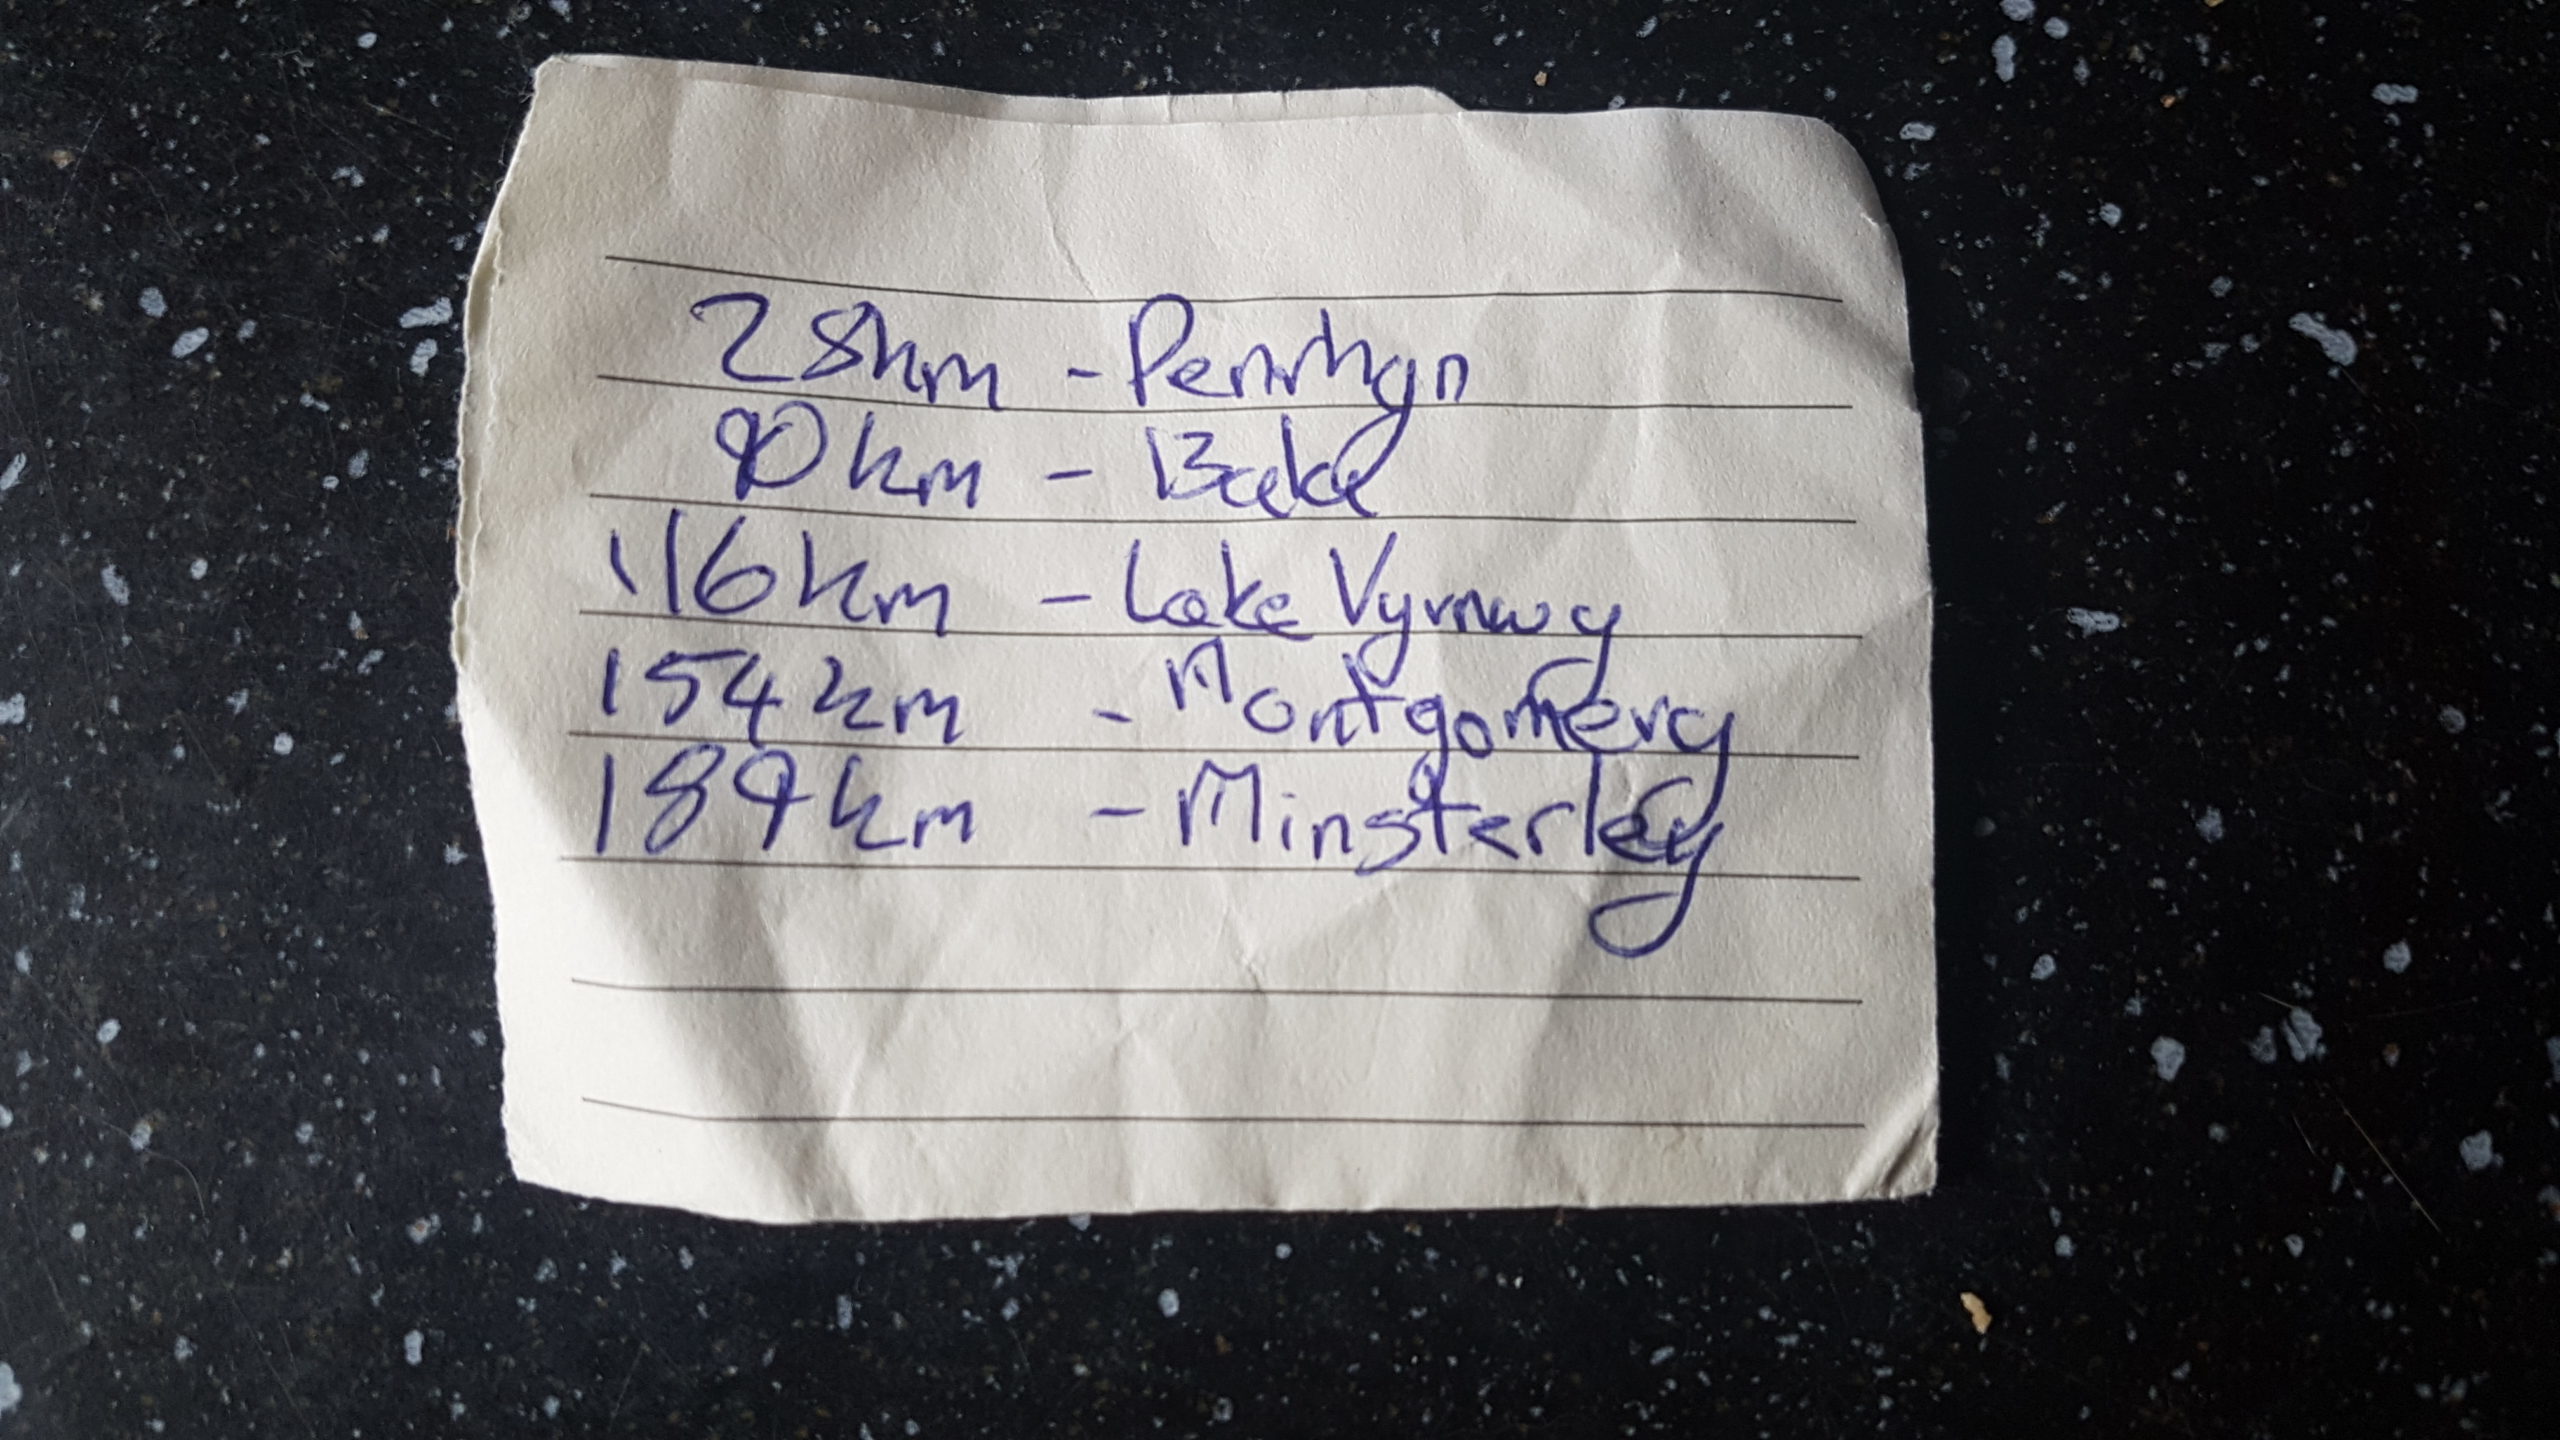 28km - Penrhyn
90km - Bala
116km - Lake Vyrnwy
154km - Montgomery
189km - Minsterley